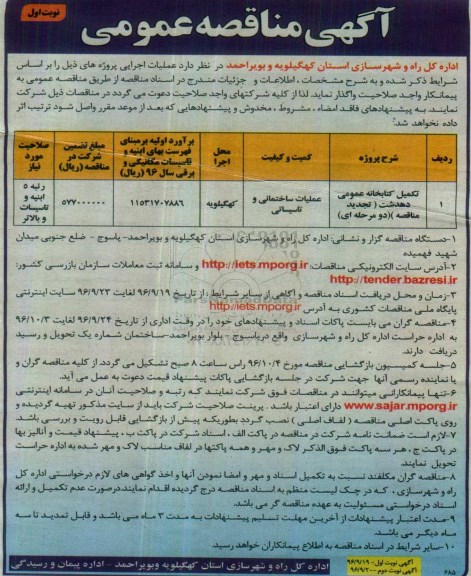 نوبت اول
آگهی مناقصه عمومی
اداره کل راه و شهرسازی استان کهگیلویه و بویراحمد در نظر دارد عملیات اجرایی پروژه های ذیل را بر اساس
شرایط ذکر شده و به شرح مشخصات ، اطلاعات و جزئیات مندرج در اسناد مناقصه از طریق مناقصه عمومی به
پیمانکار واجد صلاحیت واگذار نماید. لذا از کلیه شرکتهای واجد صلاحیت دعوت می گردد در مناقصات ذیل شرکت
نمایند. به پیشنهادهای فاقد امضاء ، مشروط ، مخدوش و پیشنهادهایی که بعد از موعد مقرر واصل شود ترتیب اثر
داده نخواهد شد:
ردیف
شرح پروژه
کمیت و کیفیت
محل اجرا
برآورد اولیه برمبنای فهرست بهای ابنیه و تاسیسات مکانیکی و برقی سال ۹۶ (ریال)
مبلغ تضمین شرکت در مناقصه (ریال)
صلاحیت مورد نیاز
۱
تکمیل کتابخانه عمومی دهدشت ( تجدید مناقصه )(دو مرحله ای)
عملیات ساختمانی و تاسیساتی
کهگیلویه
۱۱۵۳۱۷۰۷۸۸۶
۵۷۷۰۰۰۰۰۰
رتبه ۵ ابنیه و تاسیسات و بالاتر
۱-دستگاه مناقصه گزار و نشانی: اداره کل راه و شهرسازی استان کهگیلویه و بویراحمد- یاسوج - ضلع جنوبی میدان
شهید فهمیده
۲-آدرس سایت الکترونیکی مناقصات: http://iets.mporg.ir و سامانه ثبت معاملات سازمان بازرسی کشور:
http://tender.bazresi.ir
۳-زمان و محل دریافت اسناد مناقصه و آگاهی از سایر شرایط : از تاریخ ۹۶/۹/۱۹ لغایت ۹۶/۹/۲۳ سایت اینترنتی
پایگاه ملی مناقصات کشوری به آدرس http://iets.mporg.ir
۴-مناقصه گران می بایست پاکات اسناد و پیشنهادهای خود را در وقت اداری از تاریخ ۹۶/۹/۲۴ لغایت ۹۶/۱۰/۳
به اداره حراست اداره کل راه و شهرسازی واقع در یاسوج - بلوار بویراحمد-ساختمان شماره یک تحویل و رسید
دریافت دارند.
۵-جلسه کمیسیون بازگشایی مناقصه مورخ ۹۶/۱۰/۴ راس ساعت ۸ صبح تشکیل می گردد. از کلیه مناقصه گران و
یا نماینده رسمی آنها جهت شرکت در جلسه بازگشایی پاکات پیشنهاد قیمت دعوت به عمل می آید.
۶-تنها پیمانکارانی میتوانند در مناقصات فوق شرکت نمایند که رتبه و صلاحیت آنان در سامانه اینترنتی
www.sajar.mporg.ir دارای اعتبار باشد . پرینت صلاحیت شرکت باید از سایت مذکور تهیه گردیده و
روی پاکت اصلی مناقصه ( لفاف اصلی ) نصب گردد بطوریکه پیش از بازگشایی قابل رویت و بررسی باشد.
۷-لازم است ضمانت نامه شرکت در مناقصه در پاکت الف ، اسناد شرکت در پاکت ب ، پیشنهاد قیمت و آنالیز بها
در پاکت ج ، هر سه پاکت فوق الذکر لاک و مهر و همه پاکتها در لفاف مناسب لاک و مهر شده به اداره حراست
تحویل نمایند.
۸-مناقصه گران مکلفند نسبت به تکمیل اسناد و مهر و امضا نمودن آنها و اخذ گواهی های لازم درخواستی اداره کل
راه و شهرسازی ، که در چک لیست منظم به اسناد مناقصه درج گردیده اقدام نمایند.درصورت عدم تکمیل و ارائه
اسناد درخواستی مسئولیت به عهده مناقصه گر می باشد.
۹-مدت اعتبار پیشنهادات از آخرین مهلت تسلیم پیشنهادات به مدت ۳ ماه می باشد و قابل تمدید تا سه
ماه دیگر می باشد.
۱۰-سایر شرایط در اسناد مناقصه به اطلاع پیمانکاران خواهد رسید.
آگهی نوبت اول- ۹۶/۹/۱۹
آگهی نوبت دوم- ۹۶/۹/۲۰
اداره کل راه و شهرسازی استان کهگیلویه وبویراحمد - اداره پیمان و رسیدگی
۶۸۵